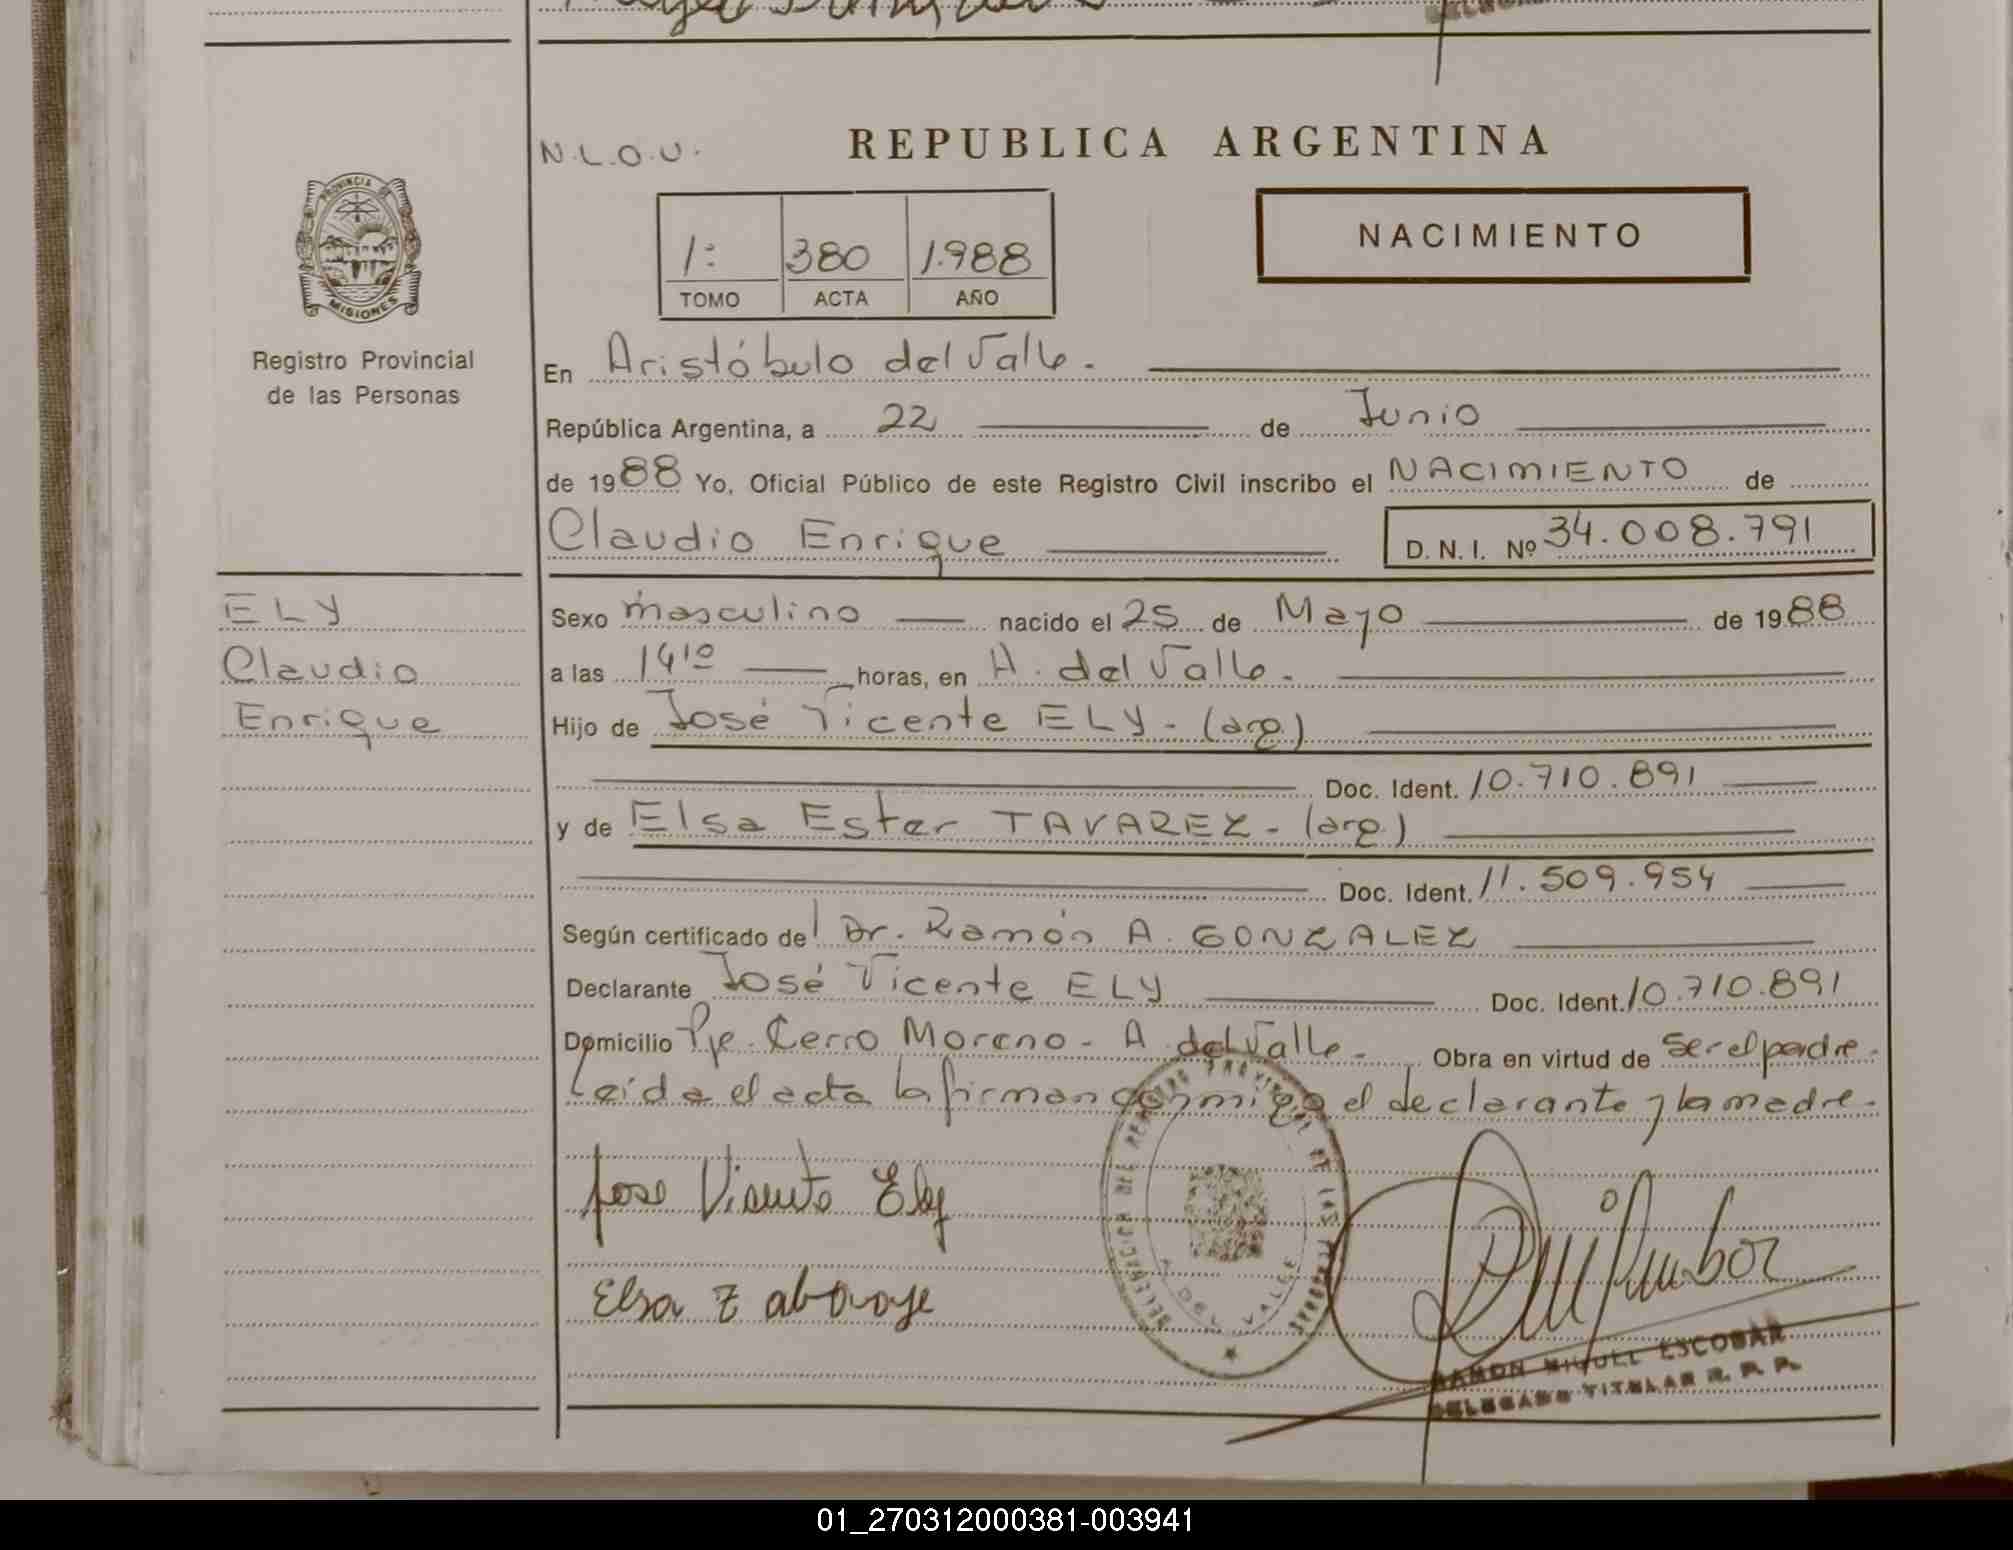 N.L.O.U.
REPUBLICA ARGENTINA
1: 380 1.988
TOMO ACTA AÑO
NACIMIENTO
PROVINCIA
MISIONES
Registro Provincial
de las Personas
En Aristóbulo del Valle.
República Argentina, a 22 de Junio
de 1988 Yo, Oficial Público de este Registro Civil inscribo el NACIMIENTO de
Claudio Enrique D.N.I. Nº 34.008.791
ELY
Claudio
Enrique
Sexo masculino nacido el 25 de Mayo de 1988
a las 14¹⁰ horas, en A. del Valle.
Hijo de José Vicente ELY - (arg.)
Doc. Ident. 10.710.891
y de Elsa Ester TAVAREZ - (arg.)
Doc. Ident. 11.509.954
Según certificado del Dr. Ramón A. GONZALEZ
Declarante José Vicente ELY Doc. Ident. 10.710.891
Domicilio Pje. Cerro Moreno - A. del Valle. Obra en virtud de ser el padre.
Leida el acta la firman conmigo el declarante y la madre.
Jose Vicente Ely
Elsa
DELEGACION DEL REGISTRO PROVINCIAL DE LAS PERSONAS
A. DEL VALLE
RAMON MIGUEL ESCOBAR
DELEGADO TITULAR R. P. P.
01_270312000381-003941